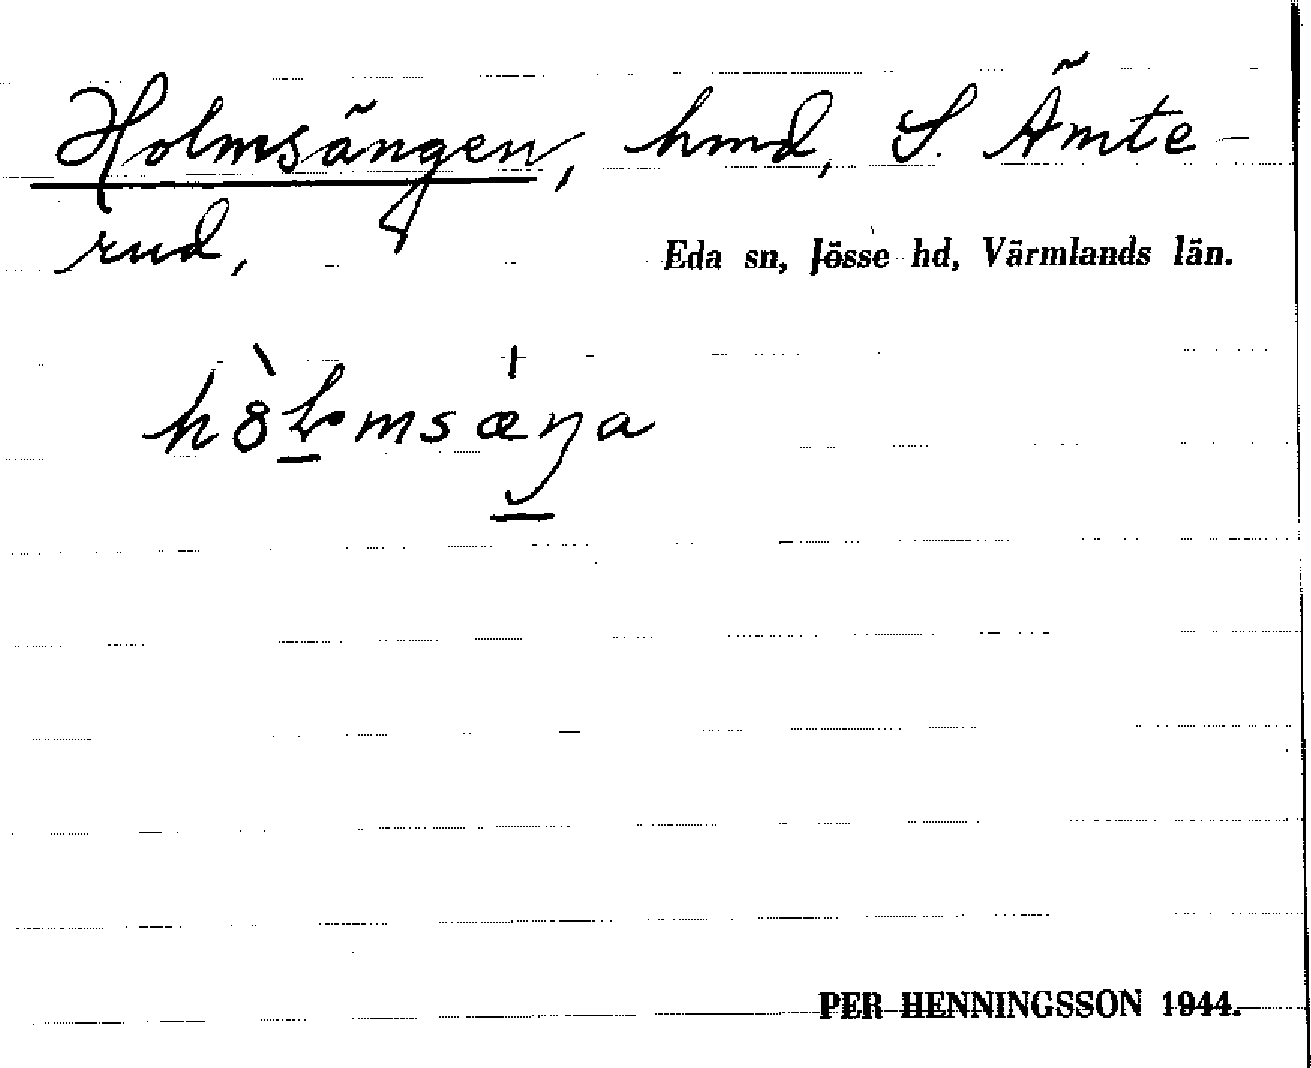 Holmsängen, hmd, S. Ämte-
rud,
Eda sn, Jösse hd, Värmlands län.
PER HENNINGSSON 1944.